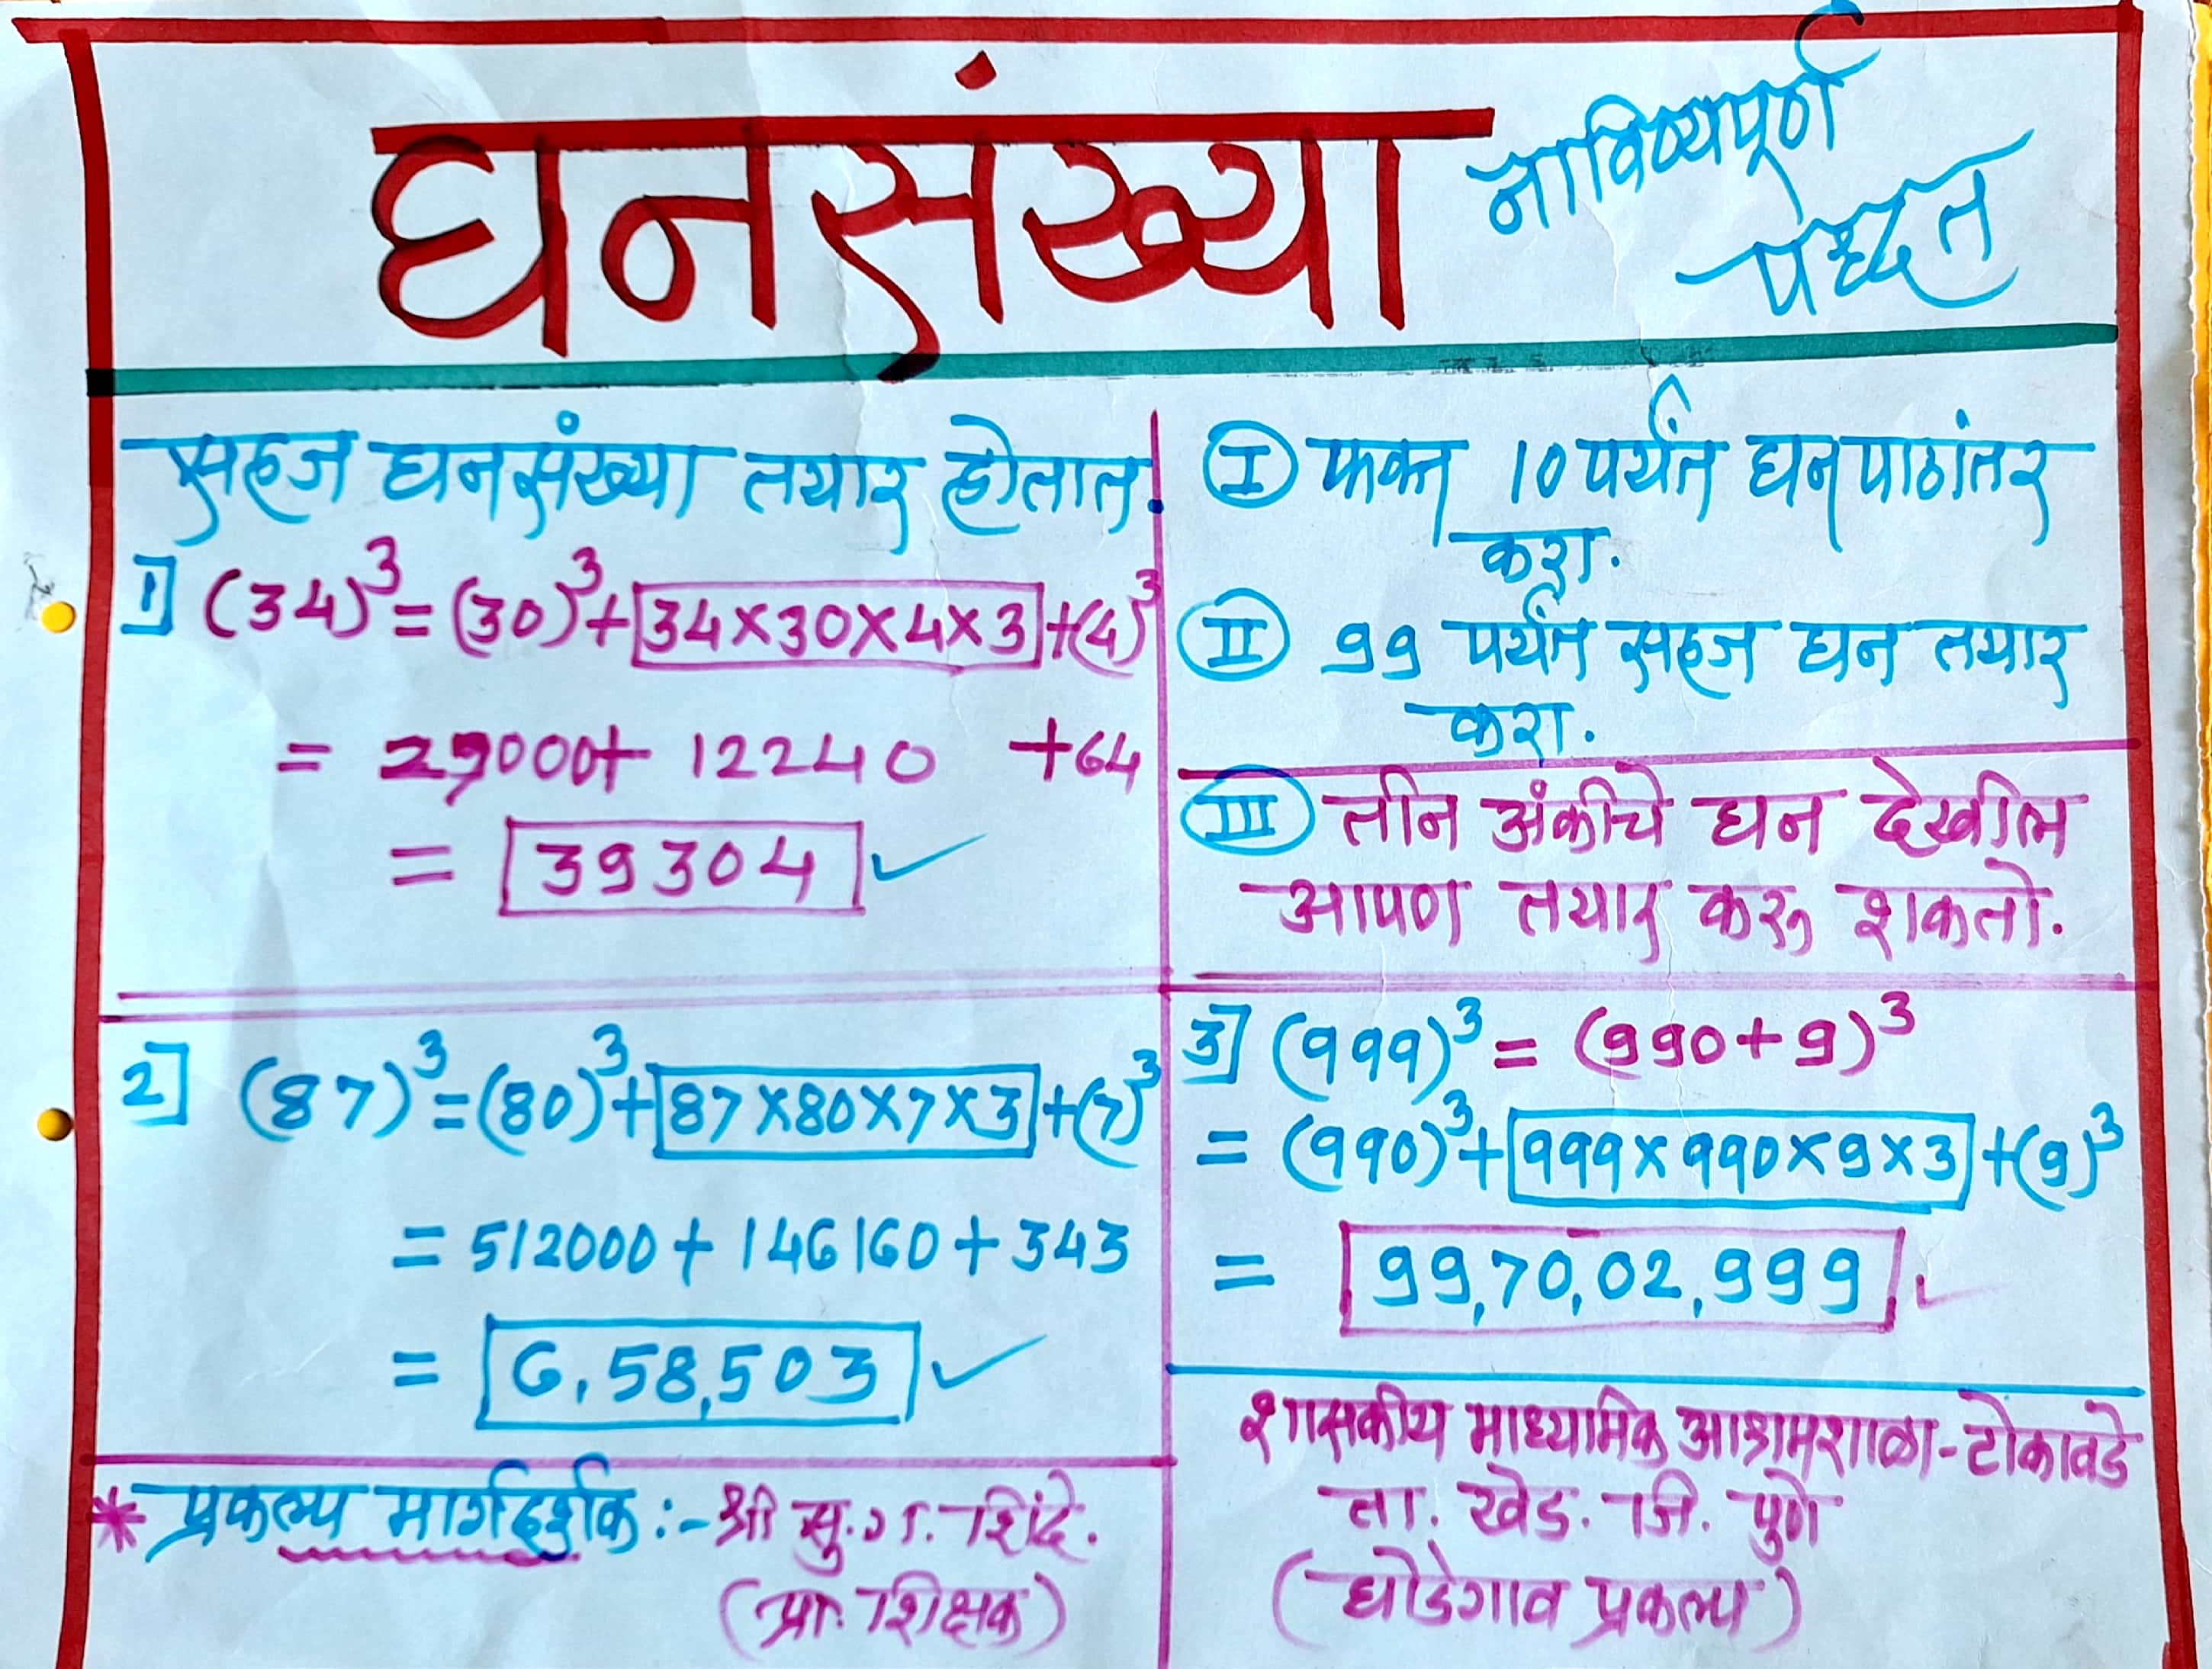 घनसंख्या
नाविण्यपूर्ण
पध्दत
सहज घनसंख्या तयार होतात.
1] (34)³ = (30)³ + 34×30×4×3 + (4)³
= 27000 + 12240 + 64
= 39304 ✓
2] (87)³ = (80)³ + 87×80×7×3 + (7)³
= 512000 + 146160 + 343
= 6,58,503 ✓
* प्रकल्प मार्गदर्शक :- श्री सु. ग. शिंदे.
(प्रा. शिक्षक)
I फक्त 10 पर्यंत घन पाठांतर
करा.
II 99 पर्यंत सहज घन तयार
करा.
III तीन अंकीचे घन देखील
आपण तयार करू शकतो.
3] (999)³ = (990+9)³
= (990)³ + 999×990×9×3 + (9)³
= 99,70,02,999 ✓
शासकीय माध्यमिक आश्रमशाळा - टोकावडे
ता. खेड. जि. पुणे
(घोडेगाव प्रकल्प)